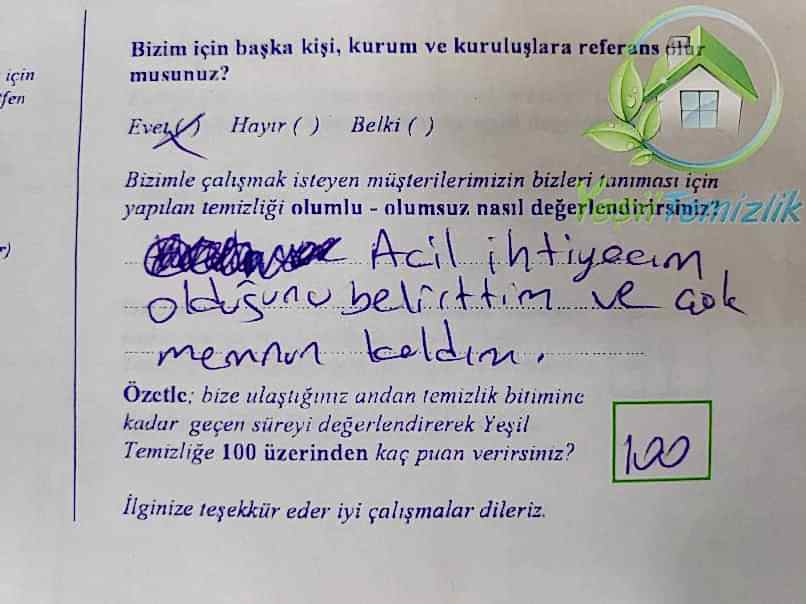 için
fen
Bizim için başka kişi, kurum ve kuruluşlara referans olur
musunuz?
Evet ( ) Hayır ( ) Belki ( )
Bizimle çalışmak isteyen müşterilerimizin bizleri tanıması için
yapılan temizliği olumlu - olumsuz nasıl değerlendirirsiniz?
Yeşil Temizlik
Acil ihtiyacım
olduğunu belirttim ve çok
memnun kaldım.
Özetle; bize ulaştığınız andan temizlik bitimine
kadar geçen süreyi değerlendirerek Yeşil
Temizliğe 100 üzerinden kaç puan verirsiniz?
100
İlginize teşekkür eder iyi çalışmalar dileriz.